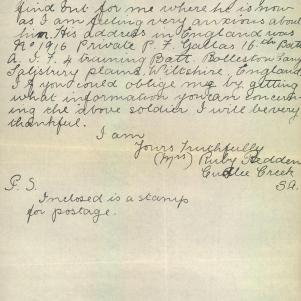 find out for me where he is now
as I am feeling very anxious about
him. His address in England was
No 1916 Private P. F. Gallas 16th Batt
A. I. F. 4 training Batt. Codford
Salisbury plains, Wiltshire, England
If you could oblige me by getting
what information you can concern-
ing the above soldier I will be very
thankful.
I am
Yours Truthfully
(Mrs) Ruby Hedden
Cudlee Creek
S.A.
P. S.
Inclosed is a stamp
for postage.